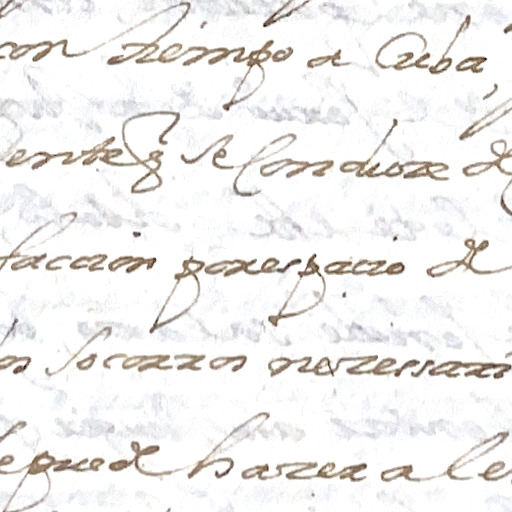 con tiempo a Cuba,
ente q se Conduxe de
faccion por espacio de
os socorros nezessari
se puede hazer a le